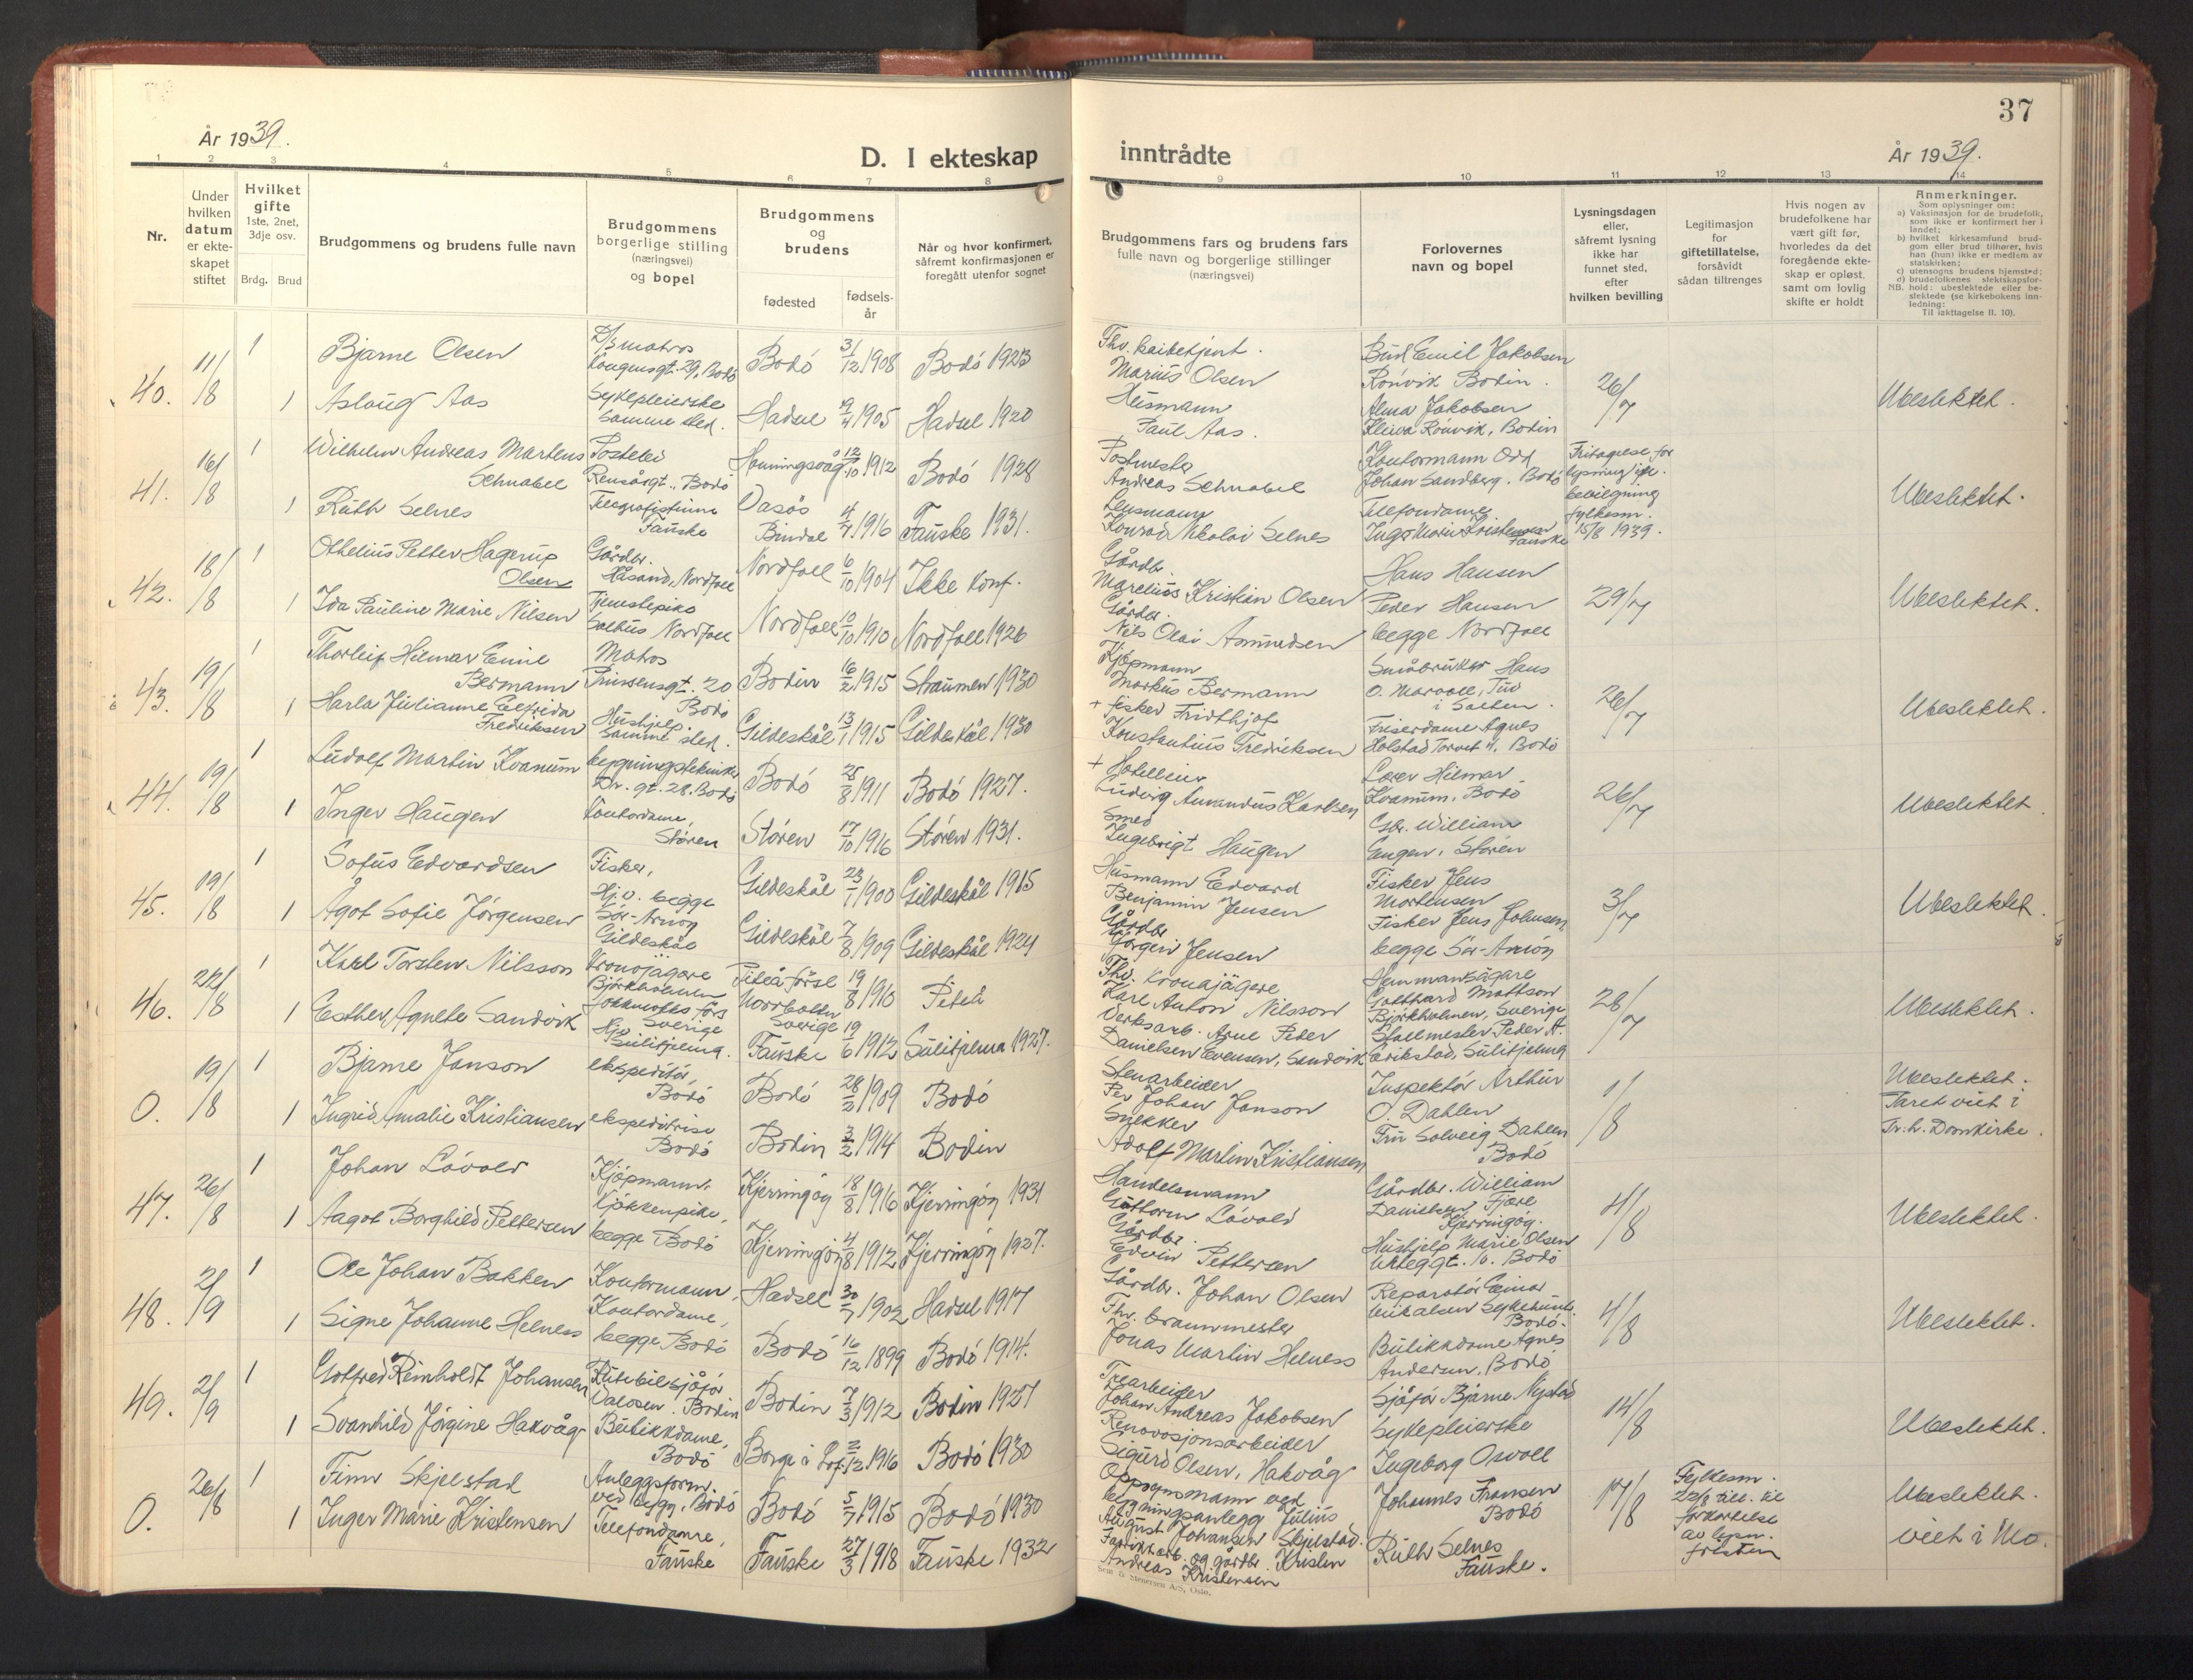 37
År 1939.
D. I ekteskap
inntrådte
År 1939.
1 2 3 4 5 6 7 8
9 10 11 12 13 14
Nr.
Under
hvilken
datum
er ekte-
skapet
stiftet
Hvilket
gifte
1ste, 2net,
3dje osv.
Brdg. Brud
Brudgommens og brudens fulle navn
Brudgommens
borgerlige stilling
(næringsvei)
og bopel
Brudgommens
og
brudens
fødested
fødsels-
år
Når og hvor konfirmert,
såfremt konfirmasjonen er
foregått utenfor sognet
Brudgommens fars og brudens fars
fulle navn og borgerlige stillinger
(næringsvei)
Forlovernes
navn og bopel
Lysningsdagen
eller,
såfremt lysning
ikke har
funnet sted,
efter
hvilken bevilling
Legitimasjon
for
giftetillatelse,
forsåvidt
sådan tiltrenges
Hvis nogen av
brudefolkene har
vært gift før,
hvorledes da det
foregående ekte-
skap er opløst,
samt om lovlig
skifte er holdt
Anmerkninger.
Som oplysninger om:
a) Vaksinasjon for de brudefolk,
som ikke er konfirmert her i
landet;
b) hvilket kirkesamfund brud-
gom eller brud tilhører, hvis
han (hun) ikke er medlem av
statskirken;
c) utensogns brudens hjemsted;
d) brudefolkenes slektskapsfor-
NB. hold: ubeslektede eller be-
slektede (se kirkebokens inn-
ledning:
Til iakttagelse II. 10).
40. 11/8 1 Bjarne Olsen D/s matros Kongensgt. 29, Bodö Bodö 31/12 1908 Bodö 1923
1 Aslaug Aas Sykepleierske samme sted. Hadsel 19/4 1905 Hadsel 1920
Fhv. kaibetjent. Marius Olsen
Husmann Paul Aas.
Bud Emil Jakobsen Rönvik Bodin.
Alma Jakobsen Kleiva Rönvik, Bodin
26/7 Ubeslektet.
41. 16/8 1 Wilhelm Andreas Martens Schnabel Rensåsgt., Bodö Honningsvåg 12/10 1912 Bodö 1928
1 Ruth Selnes Telegrafistinne Fauske Vasös Bindal 4/7 1916 Fauske 1931.
Postmester Andreas Schnabel
Lensmann Konrad Nikolai Selnes
Kontormann Odd Johan Sandberg. Bodö
Telefondame Inger Marie Kristensen Fauske
Fritagelse for lysning ifg. bevilgning fylkesm. 15/8 1939.
Ubeslektet.
42. 18/8 1 Othelius Petter Hagerup Olsen Gårdbr. Håsand, Nordfoll Nordfoll 6/10 1904 Ikke konf.
1 Ida Pauline Marie Nilsen Tjenestepike Nordfoll Nordfoll 10/10 1910 Nordfoll 1926
Gårdbr. Marelius Kristian Olsen
Gårdbr. Nils Olai Asmundsen
Hans Hansen
Peder Hansen
begge Nordfoll
29/7 Ubeslektet.
43. 19/8 1 Thorleif Hilmar Emil Bermann Matros Prinsensgt. 20 Bodö Bodin 16/2 1915 Straumen 1930
1 Harla Julianne Elfrida Fredriksen Hushjelp samme sted. Gildeskål 13/1 1915 Gildeskål 1930
Kjöpmann Markus Bermann
+ fisker Fridthjof Konstantius Fredriksen
Småbruker Hans O. Marvoll, Tuv i Salten.
Friserdame Agnes Holstad Torvet 4, Bodö
26/7 Ubeslektet.
44. 19/8 1 Ludolf Martin Kvanum bygningstekniker Dr. gt. 28. Bodö Bodö 25/8 1911 Bodö 1927.
1 Inger Haugen Kontordame, Stören Stören 17/10 1916 Stören 1931.
+ Hotelleier Ludvig Amandus Karlsen
Smed Ingebrigt Haugen
Hilmar Kvanum, Bodö
Gbr. William Engen, Stören
26/7 Ubeslektet
45. 19/8 1 Sofus Edvardsen Fisker, Gildeskål 23/1 1900 Gildeskål 1915
1 Ågot Sofie Jörgensen Hj.d. begge Sör-Arnöy Gildeskål Gildeskål 7/8 1909 Gildeskål 1924
Husmann Edvard Benjamin Jensen
Gårdbr Jörgen Jensen
Fisker Jens Mortensen
Fisker Jens Johansen,
begge Sör-Arnöy
3/7 Ubeslektet.
46. 22/8 1 Karl Torsten Nilsson Kronojägare Björkholmen Jokkmokks förs Sverige Piteå förs Norrbotten Sverige 19/8 1910 Piteå
1 Esther Agnete Sandvik Hjv Sulitjelma. Fauske 19/6 1912 Sulitjelma 1927.
Fhv. Kronojägere Karl Anton Nilsson
Verksarb. Arne Peder Danielsen Evensen, Sandvik
Hemmansägare Gotthard Mattson Björkholmen, Sverige
Stallmester Peder A. Erikstad, Sulitjelma
28/7 Ubeslektet.
0. 19/8 1 Bjarne Janson ekspeditör, Bodö Bodö 28/2 1909 Bodö
1 Ingrid Amalie Kristiansen ekspeditrise Bodö Bodin 3/2 1914 Bodin
Stenarbeider Per Johan Janson
Snekker Adolf Martin Kristiansen
Inspektör Arthur O. Dahlen
Fru Solveig Dahlen Bodö
1/8 Ubeslektet.
viet i Tr.h. Domkirke.
47. 26/8 1 Johan Lövold Kjöpmann, Kjerringöy 18/8 1916 Kjerringöy 1931
1 Aagot Borghild Pettersen Kjökkenpike, begge Bodö Kjerringöy 4/8 1912 Kjerringöy 1927.
Handelsmann Guttorm Lövold
Gårdbr. Edvin Pettersen
Gårdbr. William Danielsen, Fjære Kjerringöy.
Hushjelp Marie Olsen 10. Bodö
4/8 Ubeslektet.
48. 2/9 1 Ole Johan Bakken Kontormann, Hadsel 30/7 1902 Hadsel 1917
1 Signe Johanne Helness Kontordame, begge Bodö Bodö 16/12 1899 Bodö 1914.
Gårdbr. Johan Olsen
Fhv. brannmester Jonas Martin Helness
Reparatör Einar Bodö.
Butikkdame Agnes Andersen, Bodö
4/8 Ubeslektet.
49. 2/9 1 Gotfred Reinholdt Johansen Rutebilsjåför Valosen. Bodin Bodin 7/3 1912 Bodin 1927
1 Svanhild Jörgine Hakvåg Butikkdame, Bodö Borge i Lof. 2/12 1916 Bodö 1930
Trearbeider Johan Andreas Jakobsen
Renovasjonsarbeider Sigurd Olsen, Hakvåg
Sjåför Bjarne Nystad
Sykepleierske Ingeborg Osvoll
14/8 Ubeslektet.
0. 26/8 1 Finn Skjelstad Anleggsform. ved bygg, Bodö Bodö 5/7 1915 Bodö 1930
1 Inger Marie Kristensen Telefondame, Fauske Fauske 27/3 1918 Fauske 1932
Oppsynsmann ved bygningsanlegg Julius August Johansen Skjelstad.
Fabrikkarb. og gårdbr. Kristen Andreas Kristensen
Johannes Fransen Bodö
Ruth Selnes Fauske.
17/8 Fylkesm. 22/8 till. til forkortelse av lysn. fristen
Ubeslektet.
viet i Mo.
Sem & Stenersen A/S, Oslo.